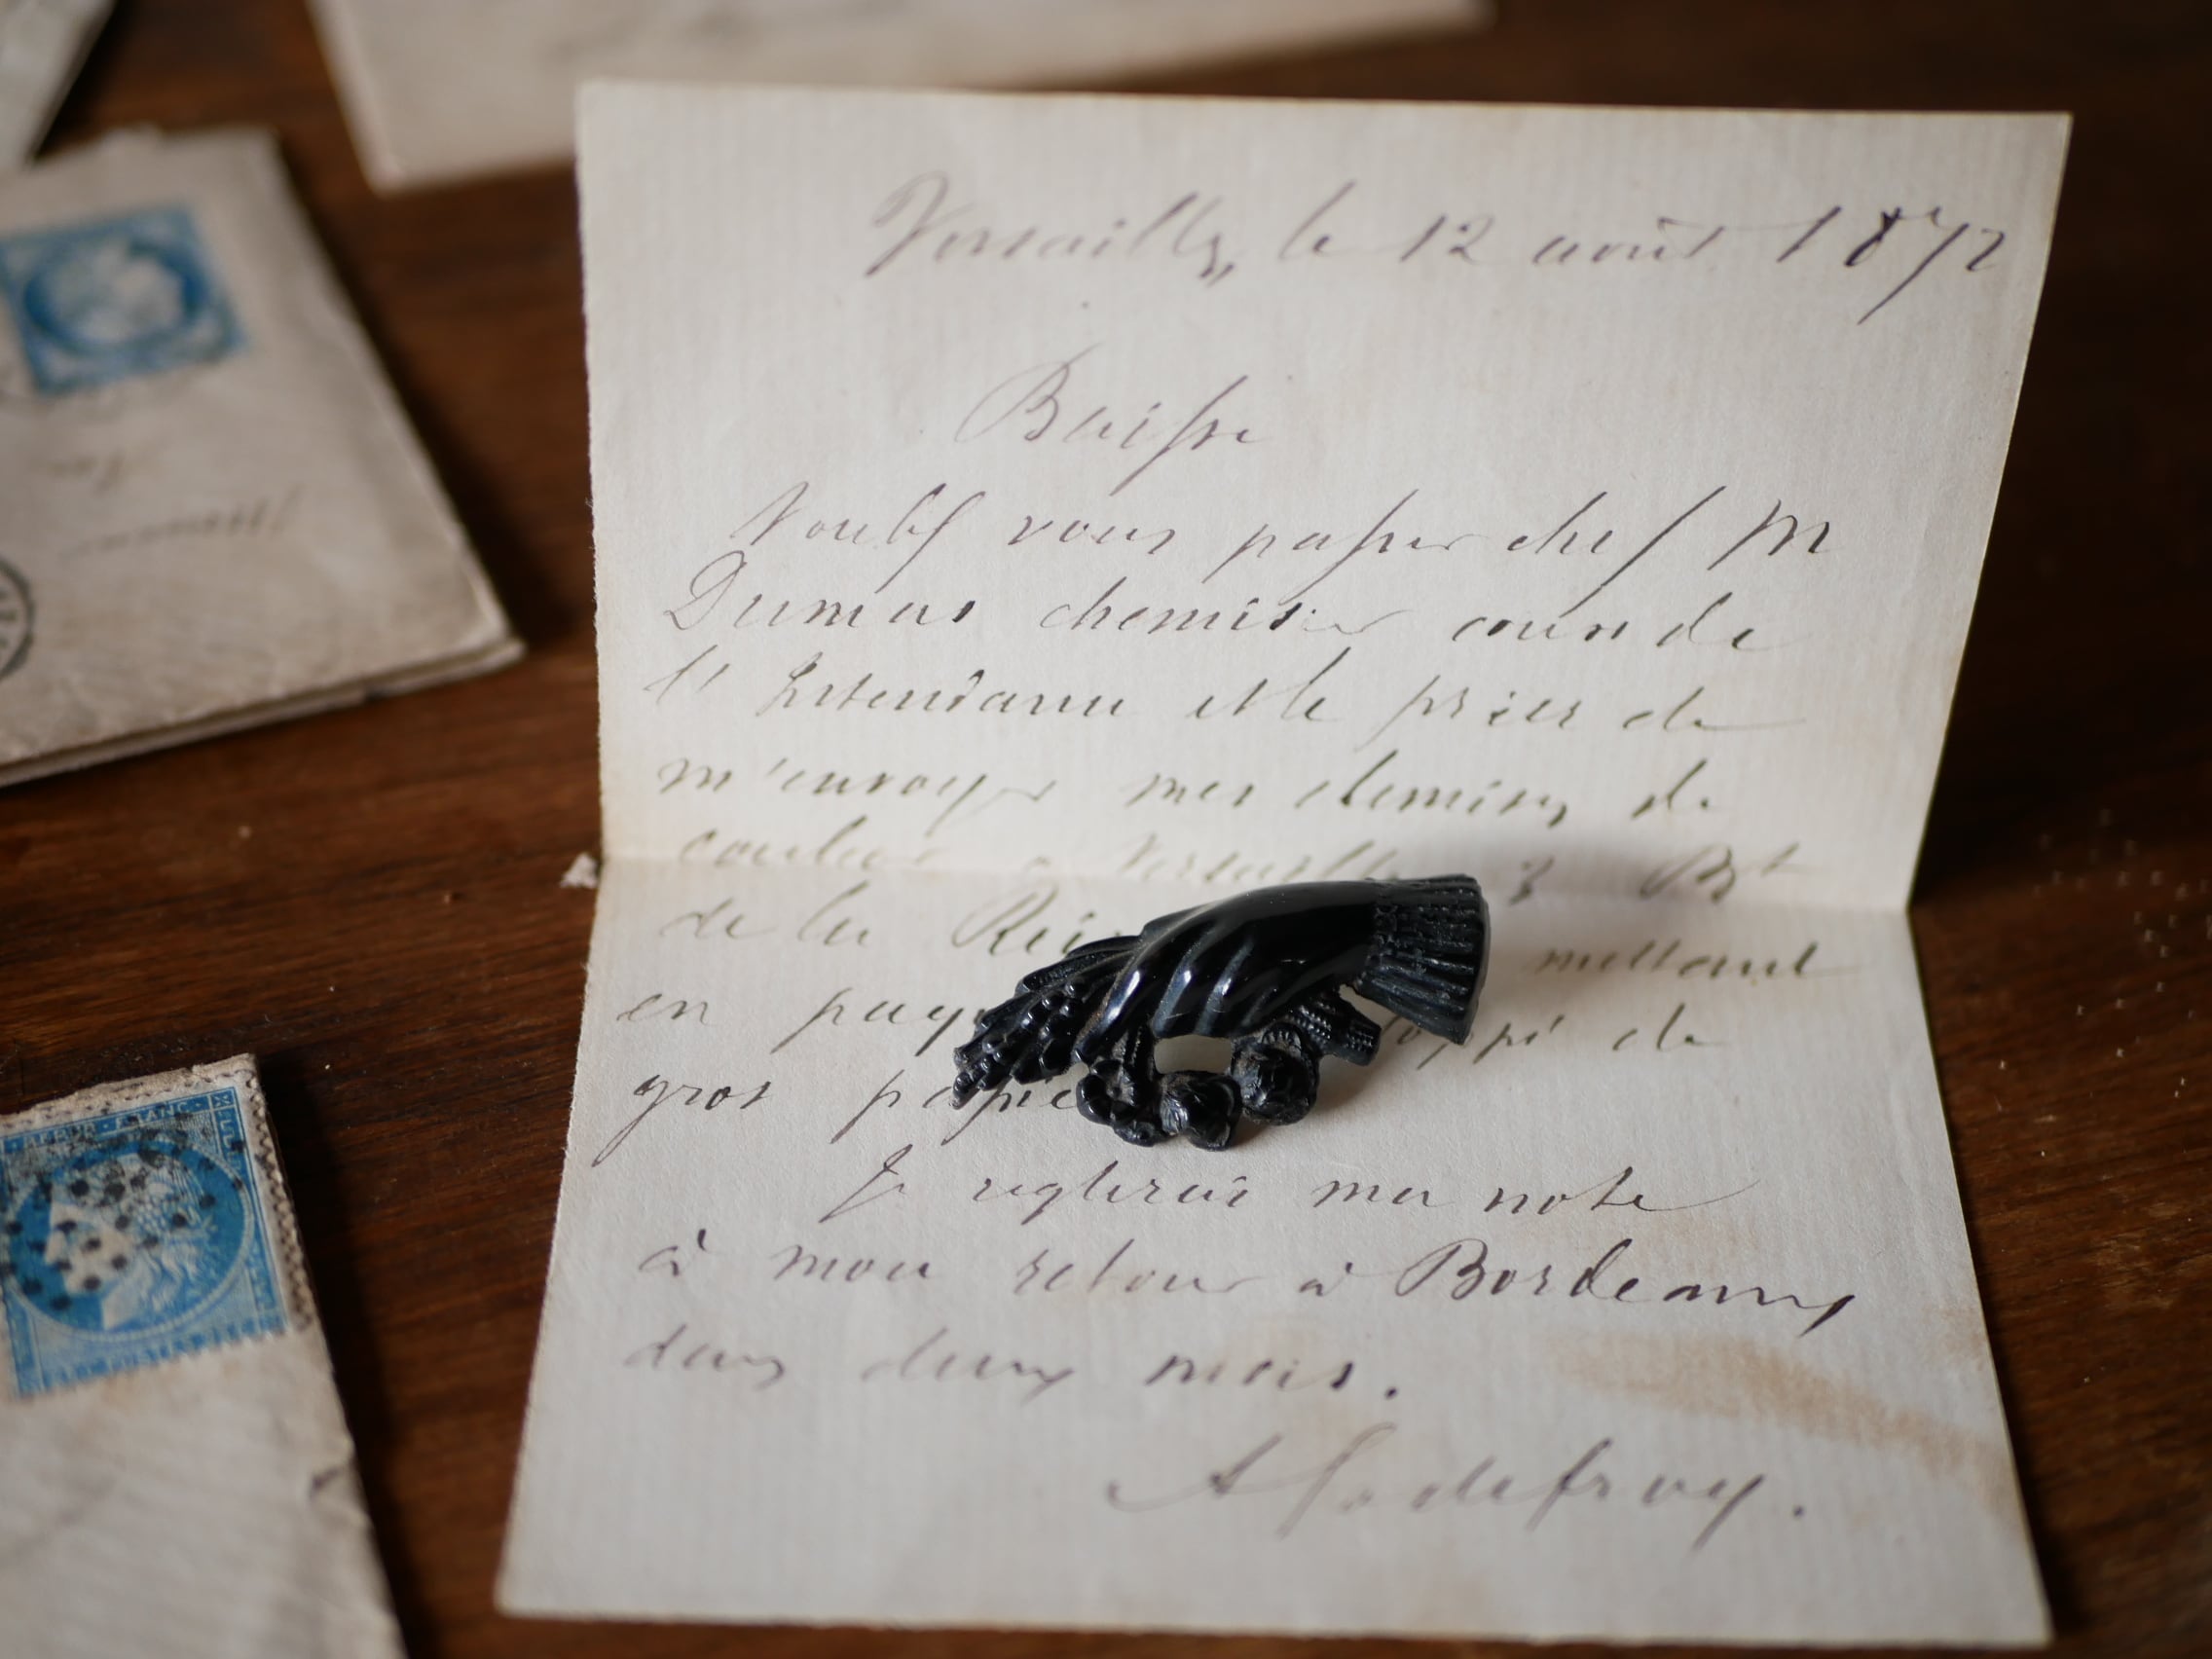 Versailles, le 12 août 1872
Baisse
Voulez vous passer chez M
Dumas chemisier cours de
l'Intendance et le prier de
m'envoyer mes chemises de
couleur a Versailles 3 Bt
de la Rei mettant
en paq oppé de
gros papie
Je reglerai ma note
à mon retour à Bordeaux
dans deux mois.
A Godefroy.